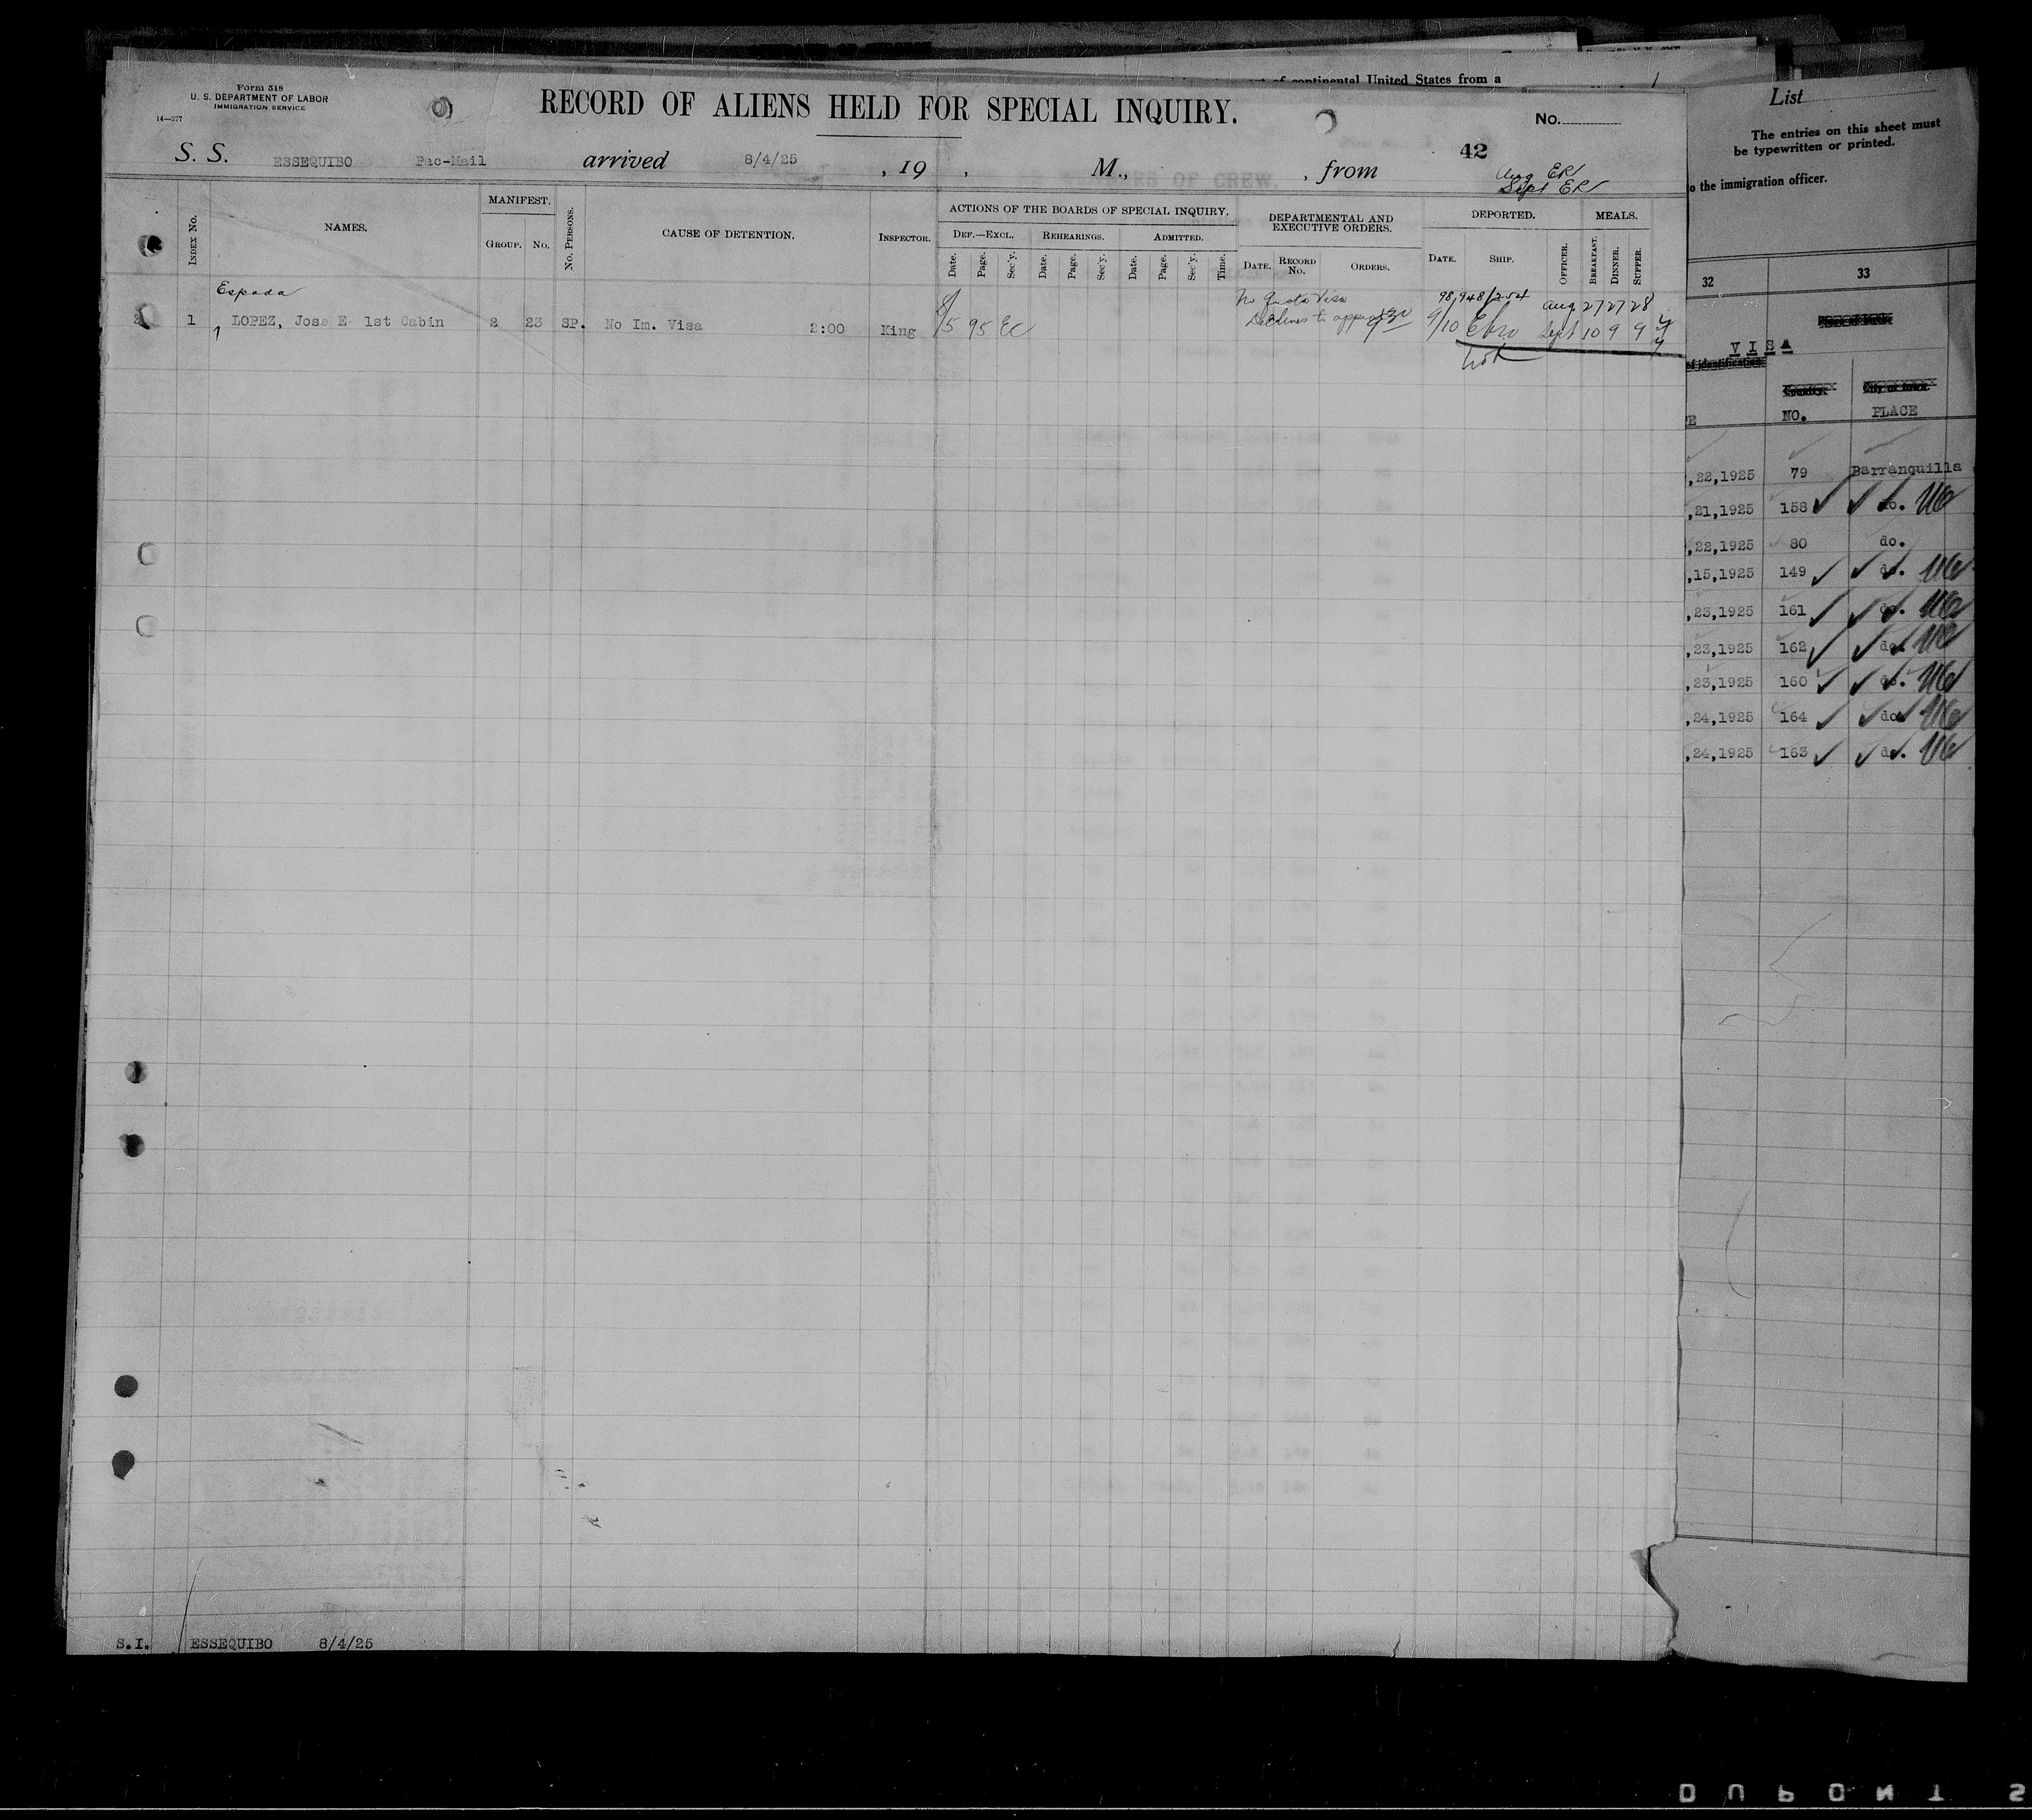 of continental United States from a
Form 518
U. S. DEPARTMENT OF LABOR
IMMIGRATION SERVICE
14—377
RECORD OF ALIENS HELD FOR SPECIAL INQUIRY.
No.
S. S. ESSEQUIBO Pac-Mail arrived 8/4/25 , 19 , M., , from
42
Aug ER
Sept ER
INDEX No.
NAMES.
MANIFEST.
GROUP. No.
No. PERSONS.
CAUSE OF DETENTION.
INSPECTOR.
ACTIONS OF THE BOARDS OF SPECIAL INQUIRY.
DEF.—EXCL. REHEARINGS. ADMITTED.
Date. Page. Sec'y. Date. Page. Sec'y. Date. Page. Sec'y. Time.
DEPARTMENTAL AND
EXECUTIVE ORDERS.
DATE. RECORD No. ORDERS.
DEPORTED.
DATE. SHIP. OFFICER.
MEALS.
BREAKFAST. DINNER. SUPPER.
Espada
No Quota Visa 98,948/254 Aug 27 27 28
1 LOPEZ, Jose E 1st Cabin 2 23 SP. No Im. Visa 2:00 King 8/5 95 EC 9/10 Ebro Sept 10 9 9
S.I. ESSEQUIBO 8/4/25
List
The entries on this sheet must
be typewritten or printed.
o the immigration officer.
32 33
Place of birth.
VISA
of identification.
Country. City or town.
E NO. PLACE
,22,1925 79 Barranquilla
,21,1925 158 do.
,22,1925 80 do.
,15,1925 149 do.
,23,1925 161 do.
,23,1925 162 do.
,23,1925 160 do.
,24,1925 164 do.
,24,1925 163 do.
DUPONT S